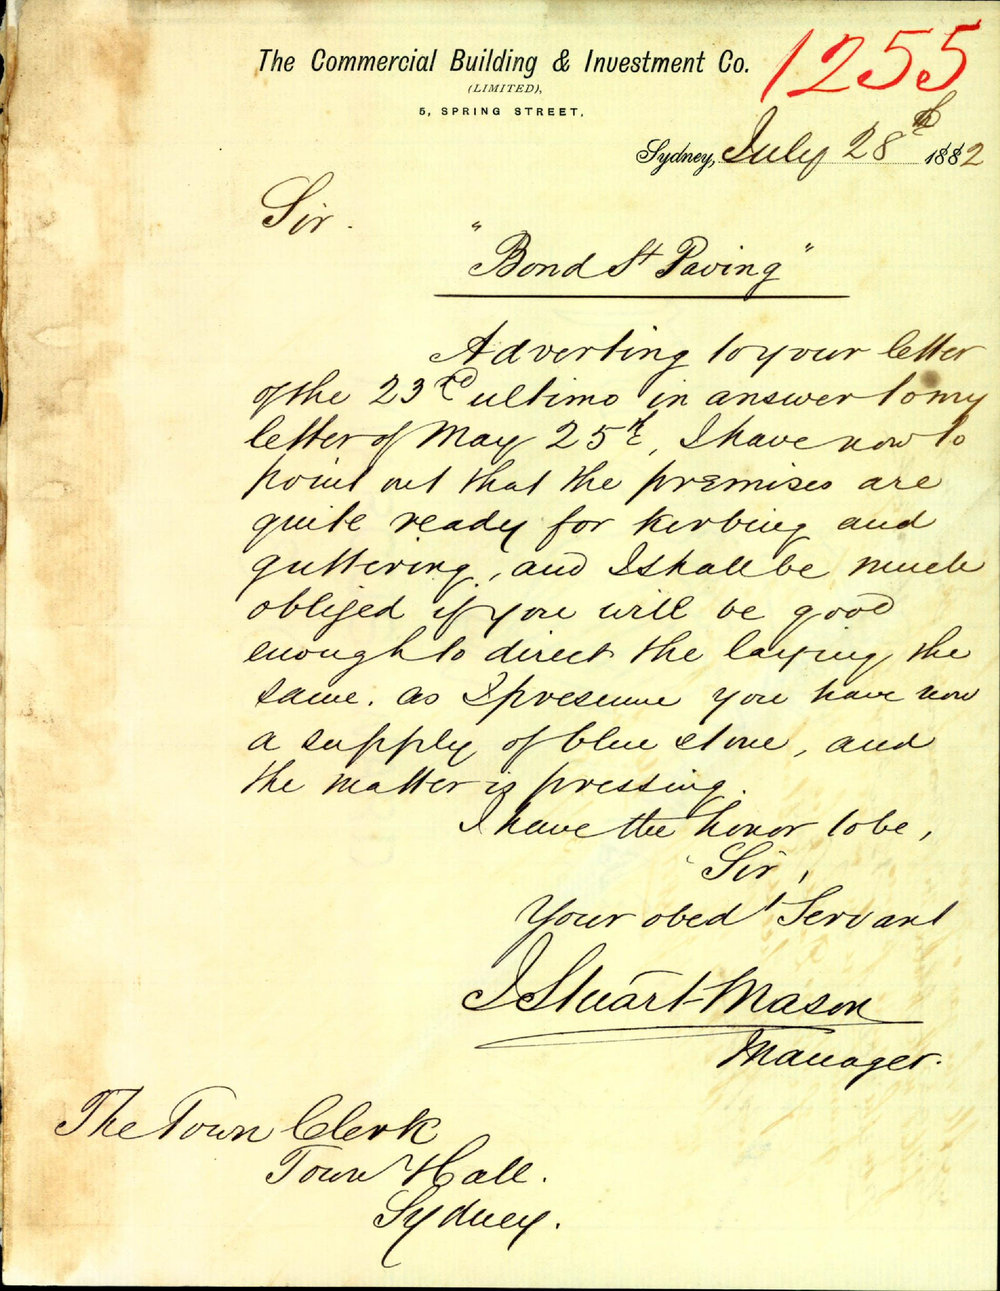 1255
The Commercial Building & Investment Co.
(LIMITED),
5, SPRING STREET,
Sydney, July 28th 1882
Sir.
"Bond St Paving"
Adverting to your letter
of the 23rd ultimo in answer to my
letter of May 25th, I have now to
point out that the premises are
quite ready for kerbing and
guttering, and I shall be much
obliged if you will be good
enough to direct the laying the
same. as I presume you have now
a supply of blue stone, and
the matter is pressing.
I have the honor to be,
Sir,
Your obedt Servant
J Stuart-Mason
Manager.
The Town Clerk
Town Hall.
Sydney.